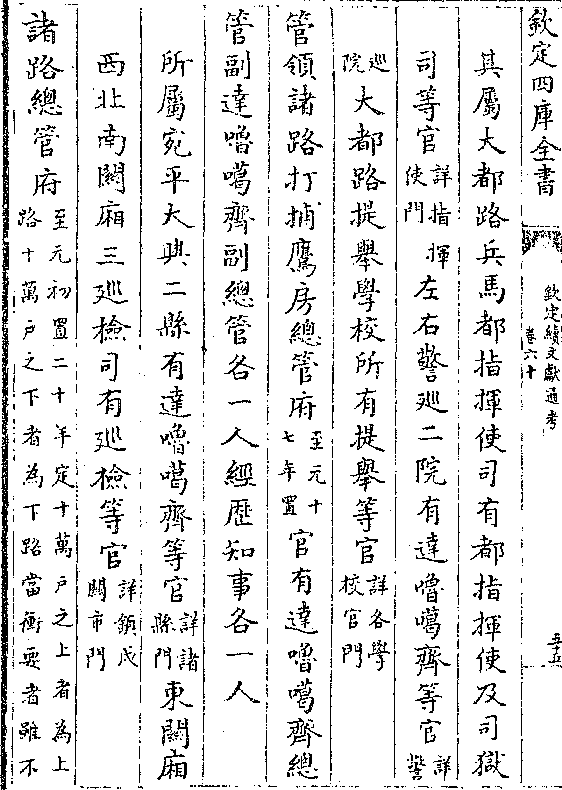 欽定四庫全書
欽定續文獻通考
卷六十
五十五
其屬大都路兵馬都指揮使司有都指揮使及司獄
司等官詳指揮使門左右警廵二院有達嚕噶齊等官詳警
廵院大都路提舉學校所有提舉等官詳各學校官門
管領諸路打捕鷹房總管府至元十七年置官有達嚕噶齊總
管副達嚕噶齊副總管各一人經歴知事各一人
所屬宛平大興二縣有達嚕噶齊等官詳諸縣門東關廂
西北南關廂三廵檢司有廵檢等官詳鎮戍關市門
諸路總管府至元初置二十年定十萬戶之上者為上路十萬戶之下者為下路當衝要者雖不